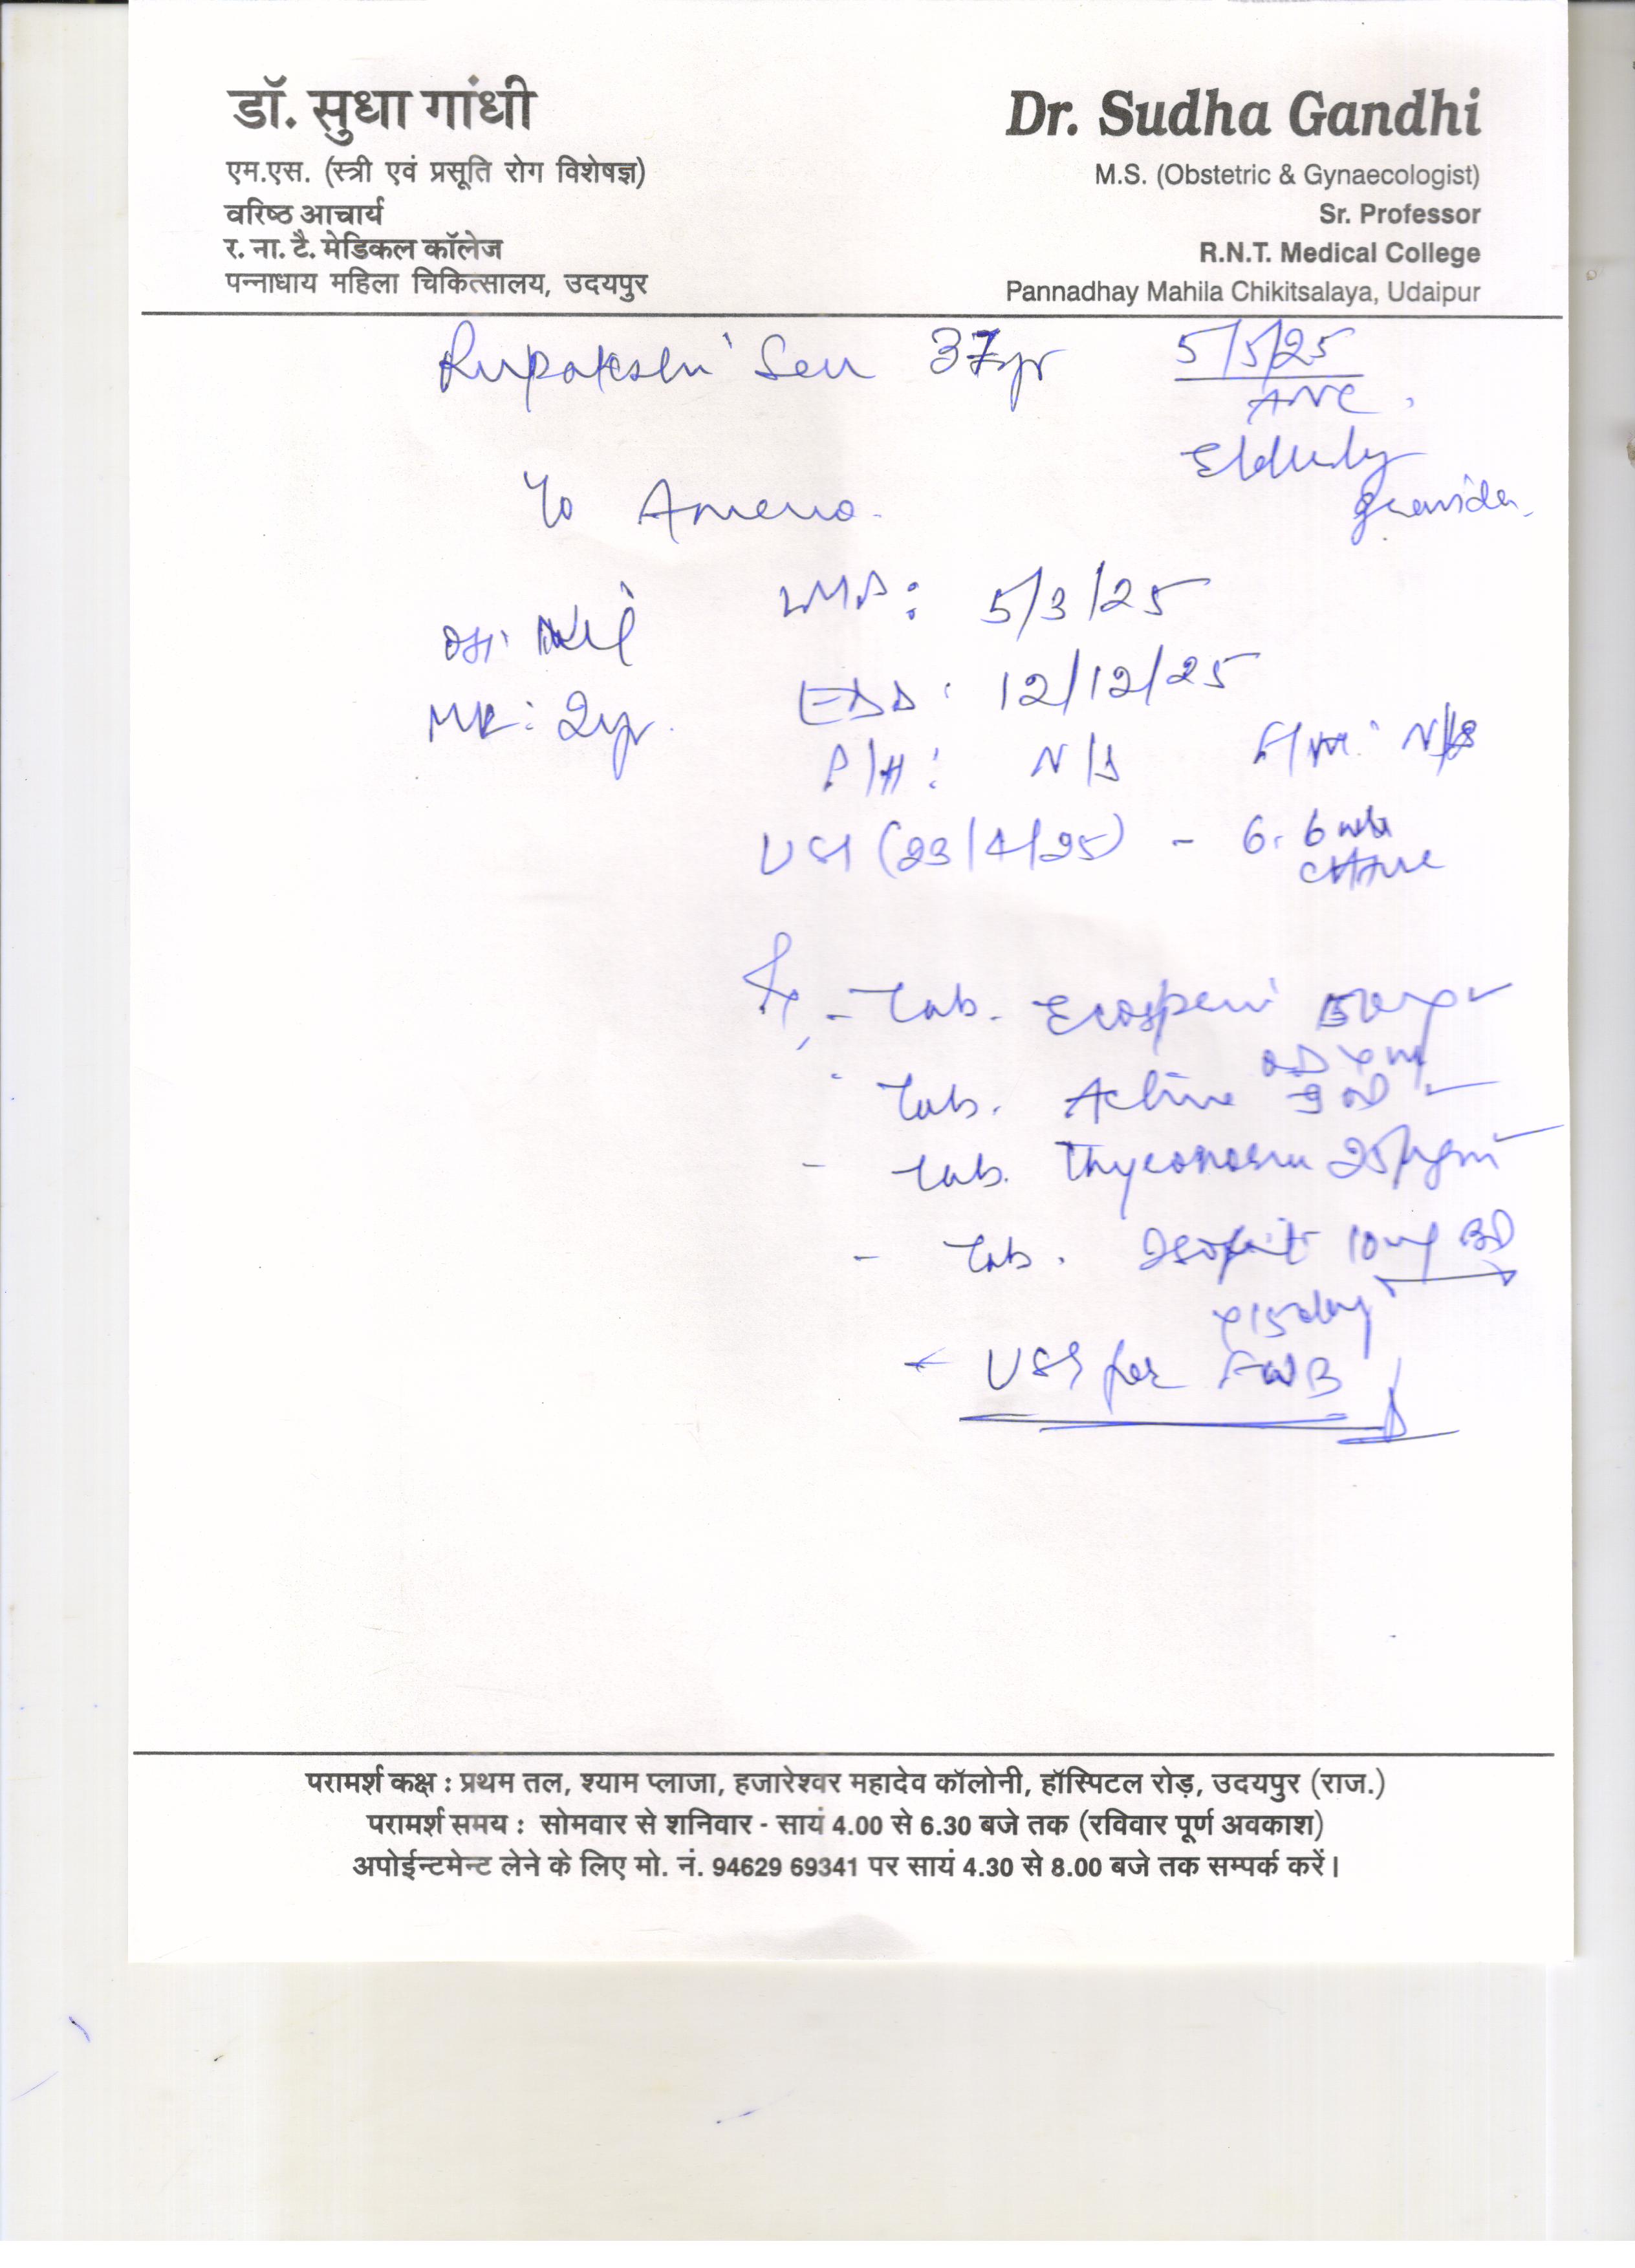 डॉ. सुधा गांधी
एम.एस. (स्त्री एवं प्रसूति रोग विशेषज्ञ)
वरिष्ठ आचार्य
र. ना. टै. मेडिकल कॉलेज
पन्नाधाय महिला चिकित्सालय, उदयपुर
Dr. Sudha Gandhi
M.S. (Obstetric & Gynaecologist)
Sr. Professor
R.N.T. Medical College
Pannadhay Mahila Chikitsalaya, Udaipur
Rupakshi Sen 37yr 5/5/25
ANC.
Elderly
gravida.
Y/o Ameno.
LMP: 5/3/25
OH: Nil
EDD: 12/12/25
MR: 2yr.
P/H: N/S F/H: N/S
USG (23/4/25) - 6.6 wks
Rx
- Tab. Ecosprin 150mg
OD
- Tab. Active OD
- Tab. Thyronorm 25µgm
- Tab. 10mg BD
x 15day
- USG for FWB
परामर्श कक्ष : प्रथम तल, श्याम प्लाजा, हजारेश्वर महादेव कॉलोनी, हॉस्पिटल रोड़, उदयपुर (राज.)
परामर्श समय : सोमवार से शनिवार - सायं 4.00 से 6.30 बजे तक (रविवार पूर्ण अवकाश)
अपोईन्टमेन्ट लेने के लिए मो. नं. 94629 69341 पर सायं 4.30 से 8.00 बजे तक सम्पर्क करें।